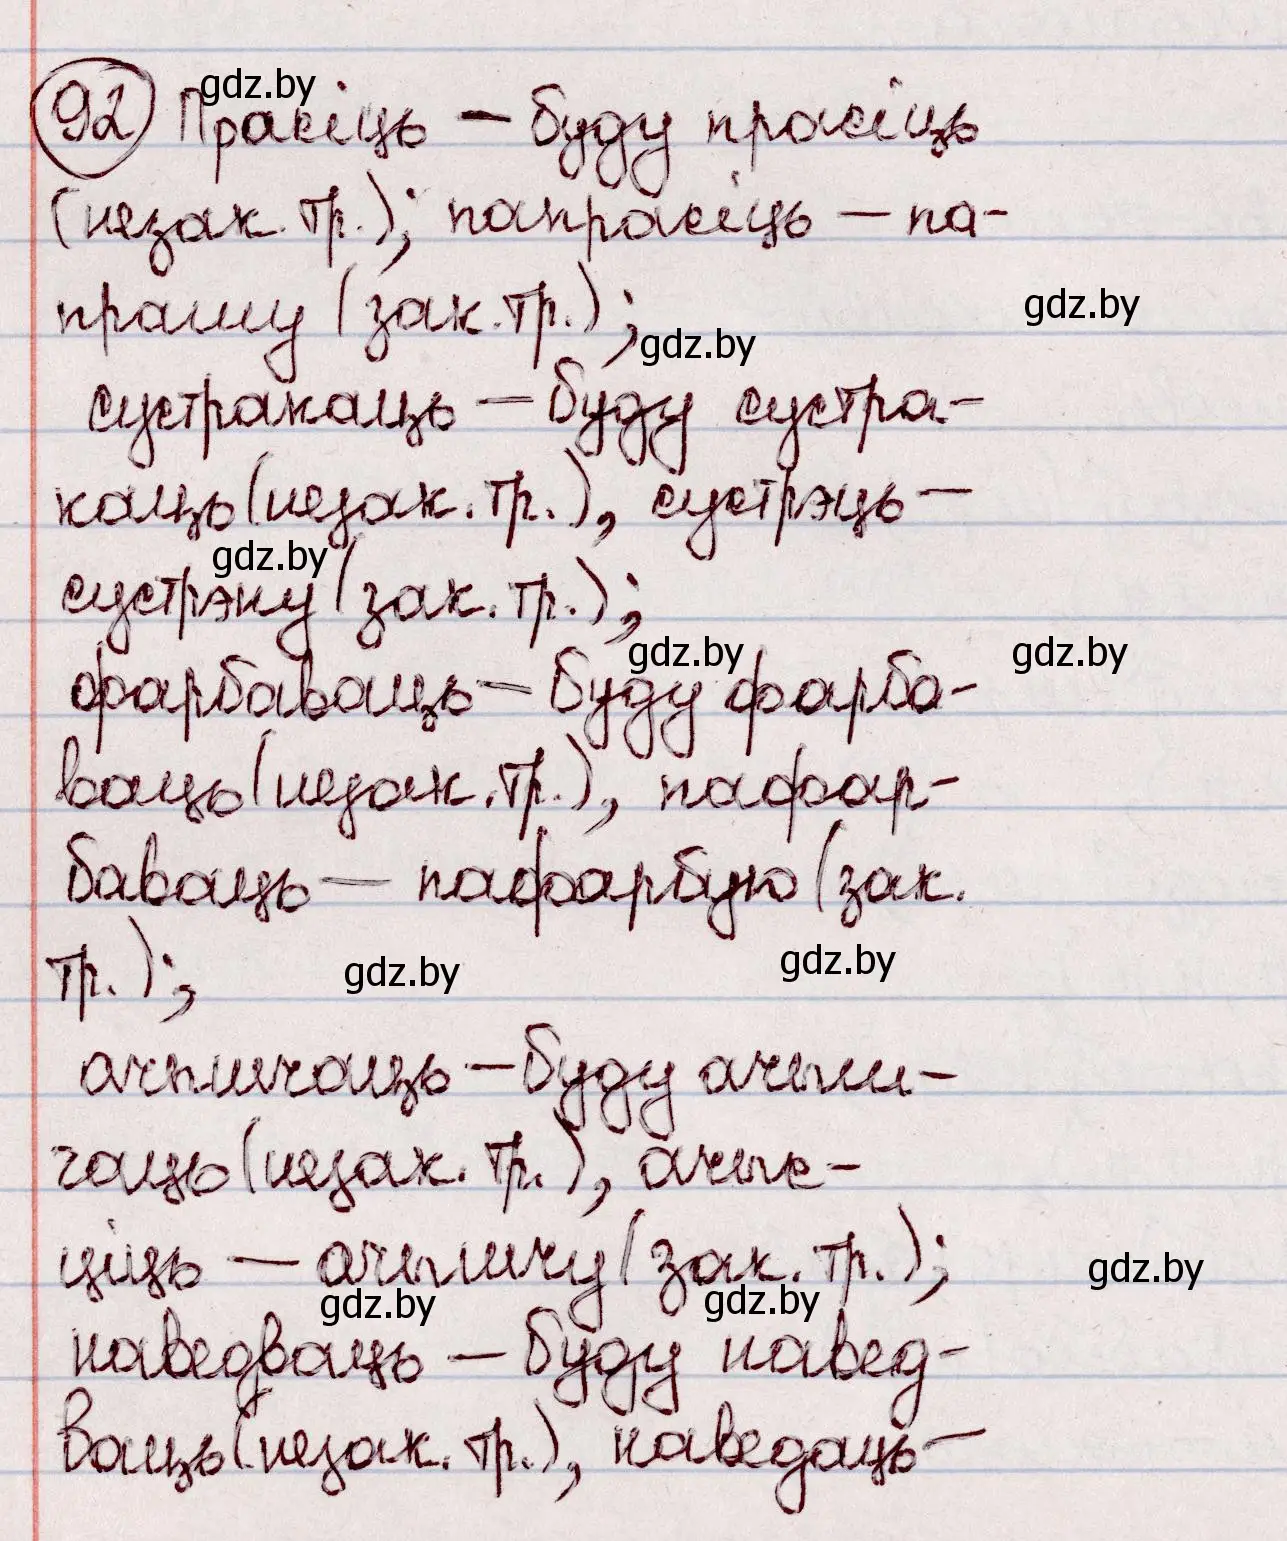 92 Прасіць — буду прасіць
(незак. тр.); папрасіць — па-
прашу (зак. тр.);
сустракаць — буду сустра-
каць (незак. тр.), сустрэць —
сустрэну (зак. тр.);
фарбаваць — буду фарба-
ваць (незак. тр.), пафар-
баваць — пафарбую (зак.
тр.);
ачышчаць — буду ачыш-
чаць (незак. тр.), ачыс-
ціць — ачышчу (зак. тр.);
наведваць — буду навед-
ваць (незак. тр.), наведаць —
gdz.by
gdz.by
gdz.by
gdz.by
gdz.by
gdz.by
gdz.by
gdz.by
gdz.by
gdz.by
gdz.by